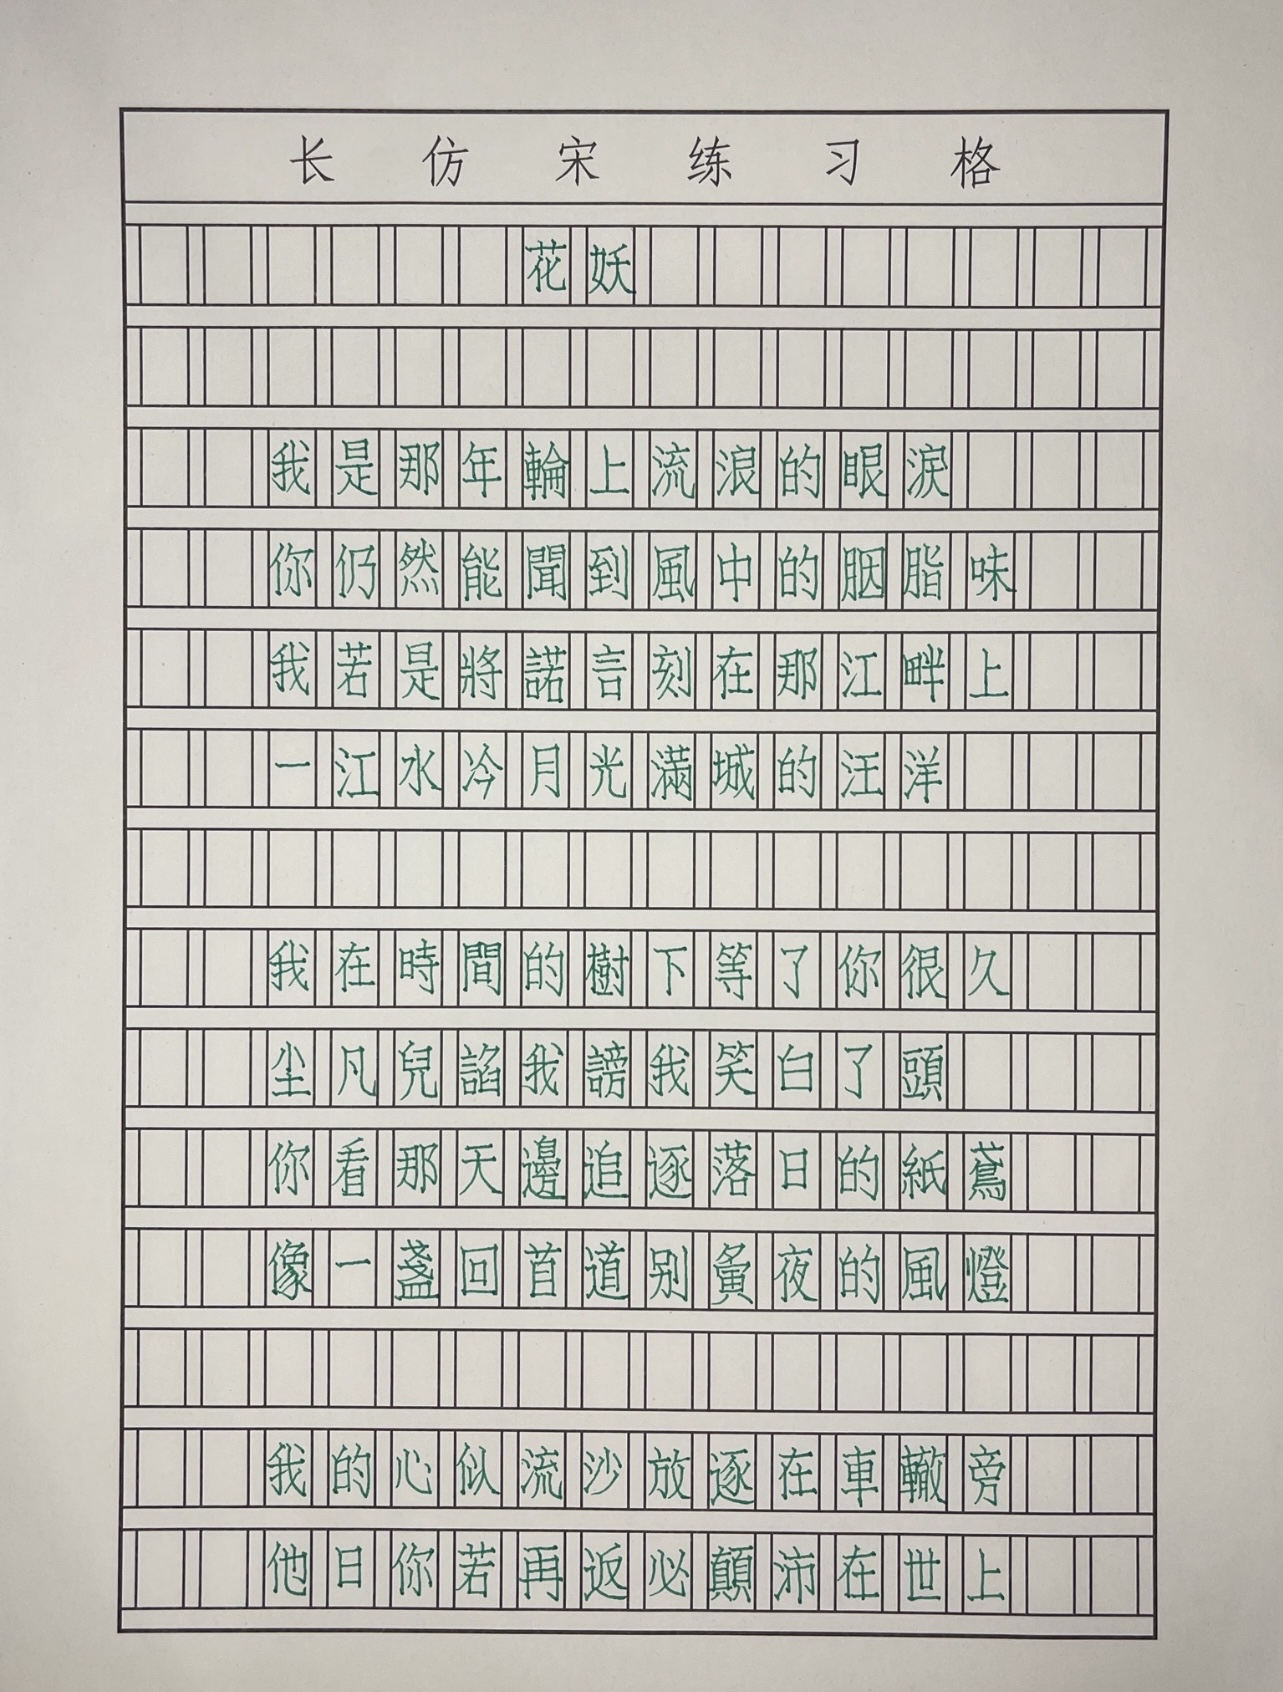 长仿宋练习格
花妖
我是那年輪上流浪的眼淚
你仍然能聞到風中的胭脂味
我若是將諾言刻在那江畔上
一江水冷月光滿城的汪洋
我在時間的樹下等了你很久
尘凡兒諂我謗我笑白了頭
你看那天邊追逐落日的紙鳶
像一盞回首道别黃夜的風燈
我的心似流沙放逐在車轍旁
他日你若再返必顛沛在世上